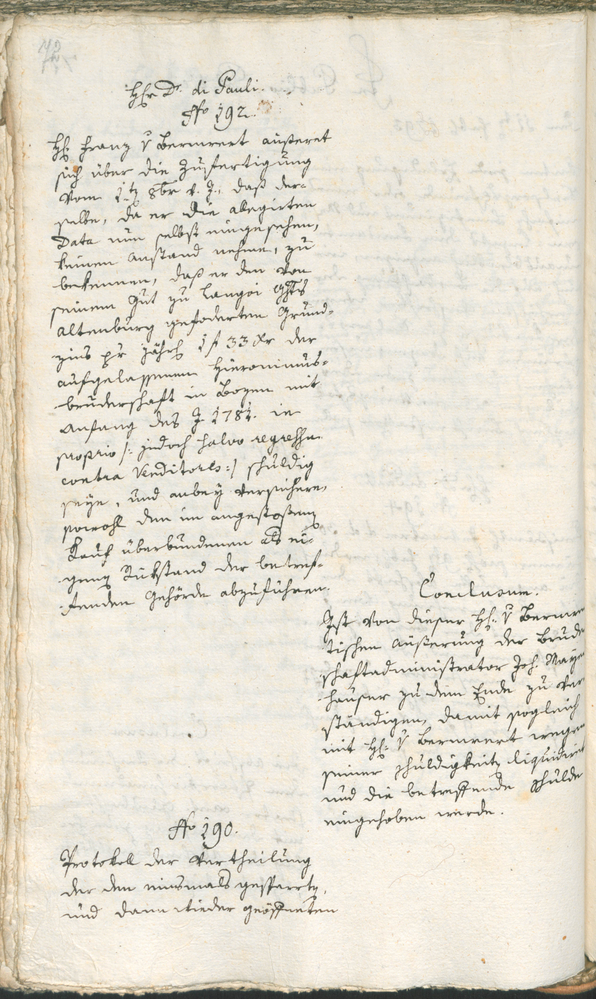 Hr. D. di Pauli.
No 192.
H: Franz v Bermrert äußeret
sich über die Zufertigung
vom 8br v. J., daß der-
selbe, da er die allegirten
Data nun selbst eingesehen,
keinen Anstand nehme, zu
bekennen, daß er den von
seinem Gut zu Langei Ghts
Altenburg geforderten Grund-
zins pr jährl 1 f 33 xr der
aufgelassenen Hieronimus-
bruderschaft in Bozen mit
Anfang des J 1781. in
proprio /: jedoch salvo regressu
contra Venditores :/ schuldig
seye, und anbey versichere,
sowohl den im angestoßenen
Kauf überbundenen als ei-
genen Rükstand der betref-
fenden Gehörde abzuführen.
Conclusum.
Ist von dieser H: v Bermrer-
tischen Äußerung der Bruder
schaftadministrator Joh. Mayr
hauser zu dem Ende zu ver
ständigen, damit sogleich
mit H: v Bermrert wegen
seiner Schuldigkeit liquidiret
und die betreffende Schulde
eingehoben werde.
No 190.
Protokoll der Vertheilung
der den einsmals gesperrten,
und dann wieder geöffneten